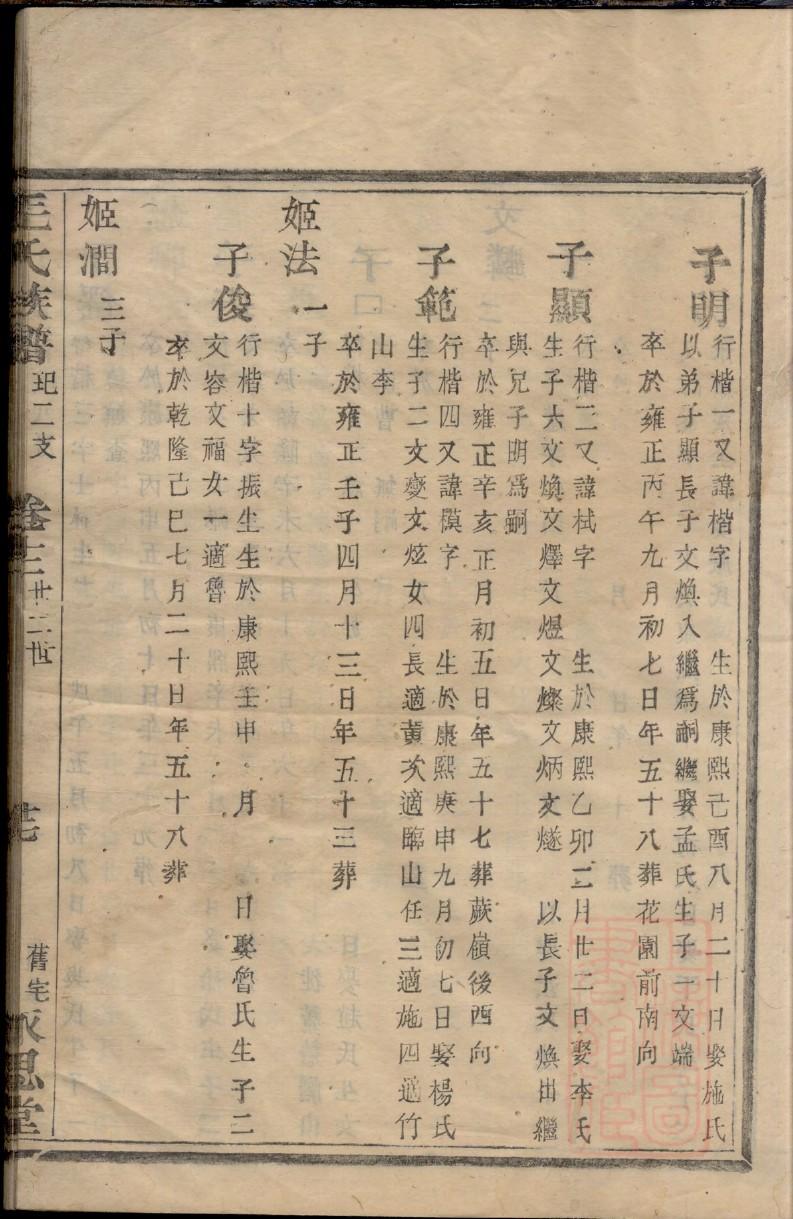 子明
行楷一又諱楷字　生於康熙己酉八月二十日娶施氏
以弟子顯長子文煥入繼爲嗣繼娶孟氏生子一文端
卒於雍正丙午九月初七日年五十八葬花園前南向
子顯
行楷二又諱栻字　生於康熙乙卯三月廿二日娶李氏
生子六文煥文燡文煜文燦文炳文燧　以長子文煥出繼
與兄子明爲嗣
卒於雍正辛亥正月初五日年五十七葬蕨嶺後酉向
子範
行楷四又諱模字　生於康熙庚申九月初七日娶楊氏
生子二文燮文炫女四長適黃次適臨山任三適施四適竹
山李
卒於雍正壬子四月十三日年五十三葬
姬法　一子
子俊
行楷十字振生生於康熙壬申　月　日娶魯氏生子二
文容文福女一適魯
卒於乾隆己巳七月二十日年五十八葬
姬澗　三子
王氏族譜　玘二支　卷十二　廿二世　舊宅永思堂